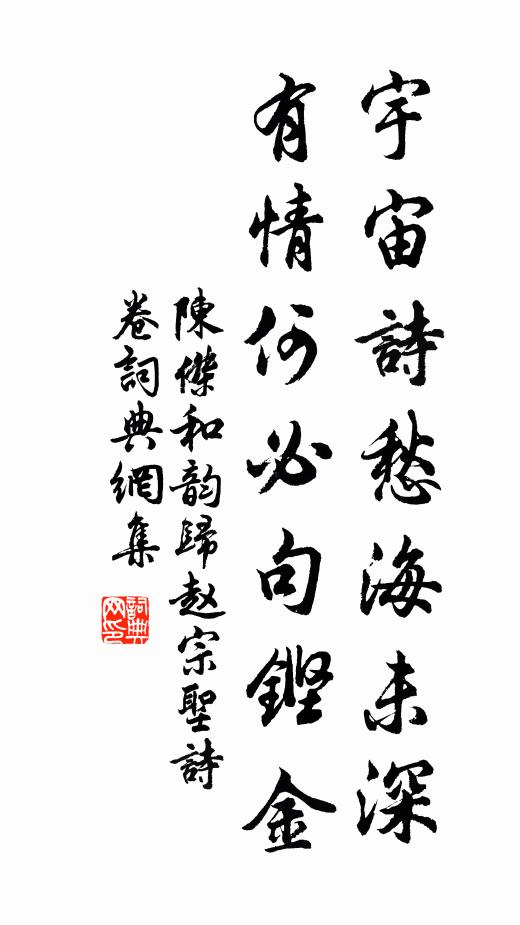 宇宙詩愁海未深
有情何必句鏗金
陳傑和韵歸赵宗聖詩
卷詞典網集
詞典
网印